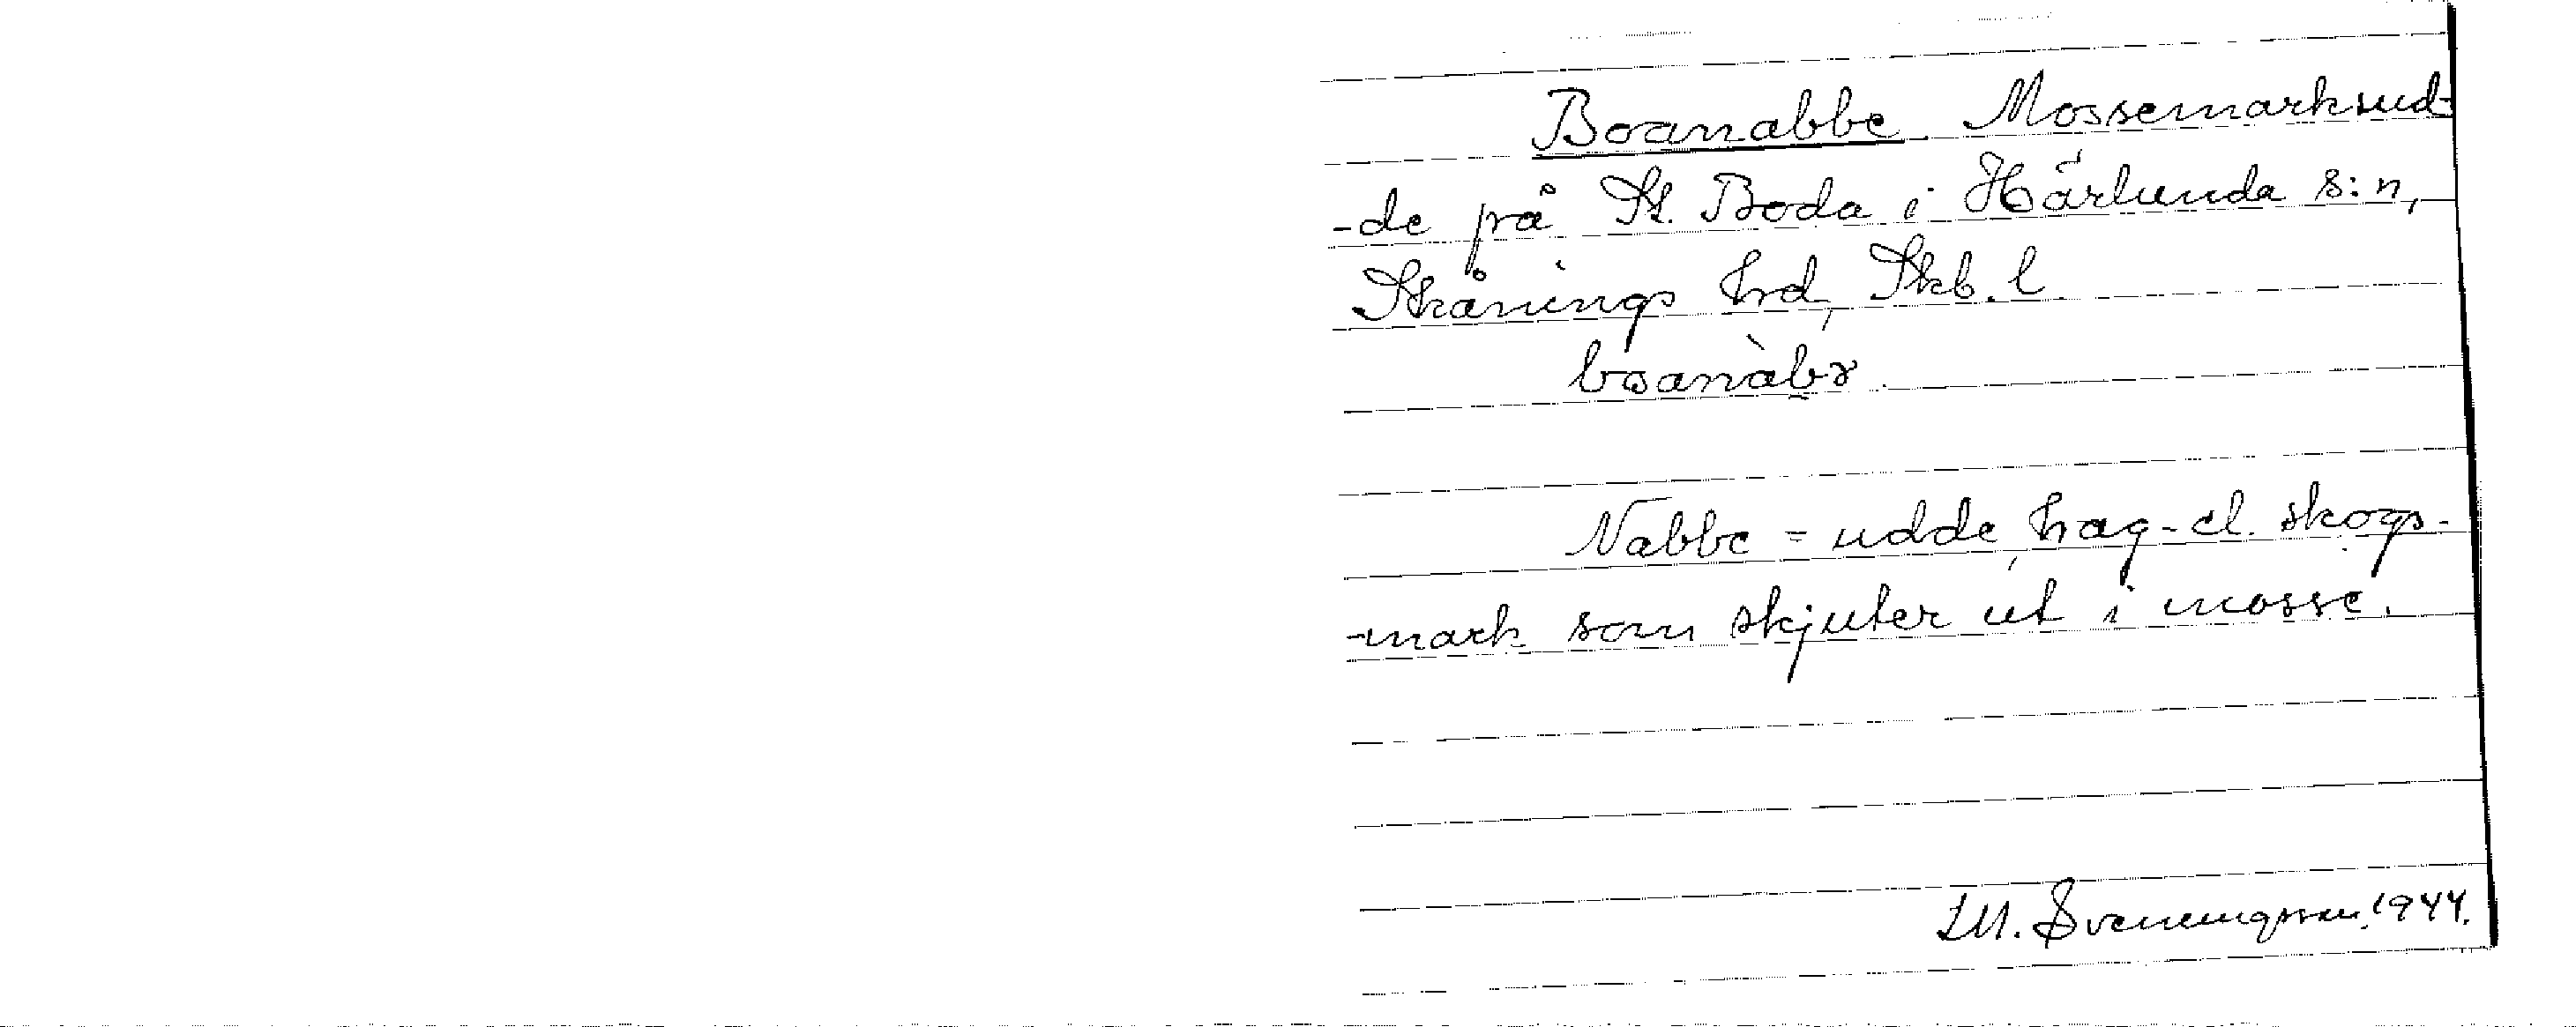 Boanabbe. Mossemarksud-
-de på St. Boda i Härlunda s:n,
Skånings hrd, Skb. l.
boanàbə.
Nabbe = udde, hag- el. skogs-
-mark som skjuter ut i mosse.
M. Svenungsson 1944.